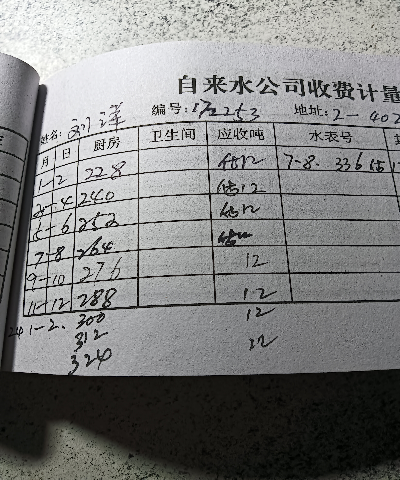 自来水公司收费计量
姓名: 刘洋 编号: 253 地址: 2-402
月 日 厨房 卫生间 应收吨 水表号
1-2 228 估12 7-8. 336
3-4 240 估12
5-6 252 估12
7-8 264
9-10 276 12
11-12 288 12
24 1-2. 300 12
312
324 12